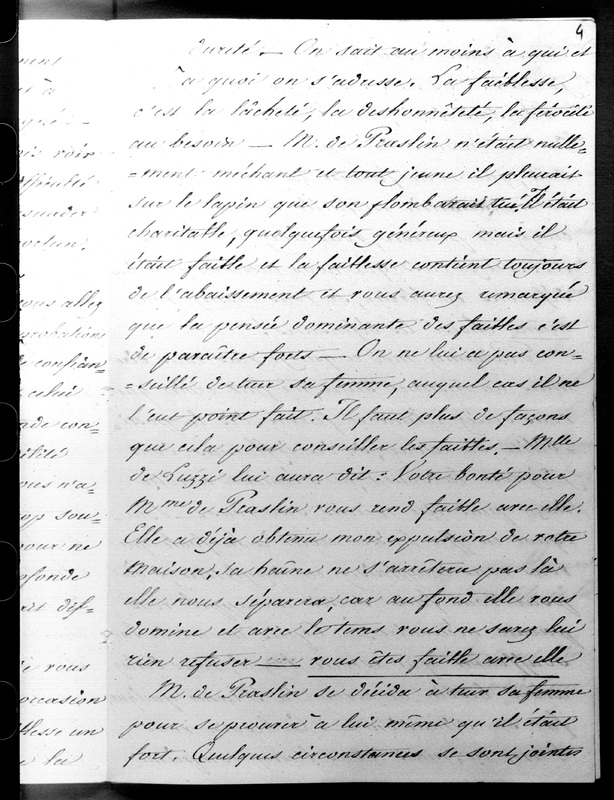 4
ment
et à
voir
difficulté
suader
vous allez
probation
de confian=
celui
de con=
vous n'a=
op sou=
pour ne
ofonde
et dif=
je vous
occasion
blesse un
e la
dureté. — On sait au moins à qui et
à quoi on s'adresse. La faiblesse,
c'est la lâcheté, la deshonnêteté, la férocité
au besoin — M. de Praslin n'était nulle=
=ment méchant et tout jeune il pleurait
sur le lapin que son plomb avait tué. Il était
charitable, quelquefois généreux mais il
était faible et la faiblesse contient toujours
de l'abaissement et vous aurez remarqué
que la pensée dominante des faibles c'est
de paraître forts — On ne lui a pas con=
=seillé de tuer sa femme, auquel cas il ne
l'eut point fait. Il faut plus de façons
que cela pour conseiller les faibles. — Mlle
de Luzzi lui aura dit : Votre bonté pour
Mme de Praslin vous rend faible avec elle.
Elle a déja obtenu mon expulsion de votre
maison, sa haîne ne s'arrêtera pas là
elle nous séparera, car au fond elle vous
domine et avec le tems vous ne savez lui
rien refuser — vous êtes faible avec elle
M. de Praslin se décida à tuer sa femme
pour se prouver à lui même qu'il était
fort. Quelques circonstances se sont jointes